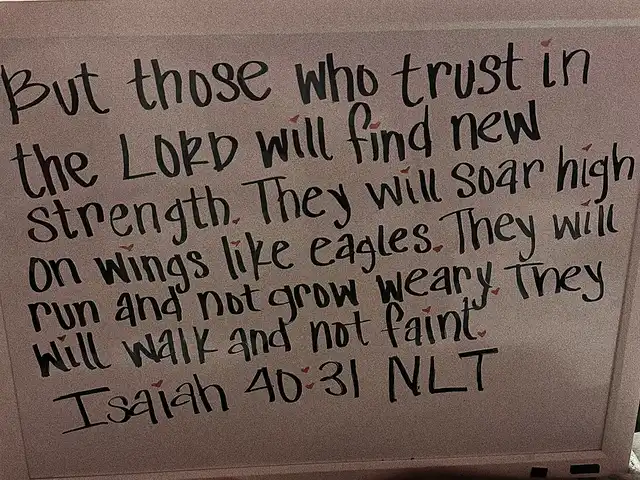 But those who trust in
the LORD will find new
strength. They will soar high
on wings like eagles. They will
run and not grow weary. They
will walk and not faint.
Isaiah 40:31 NLT